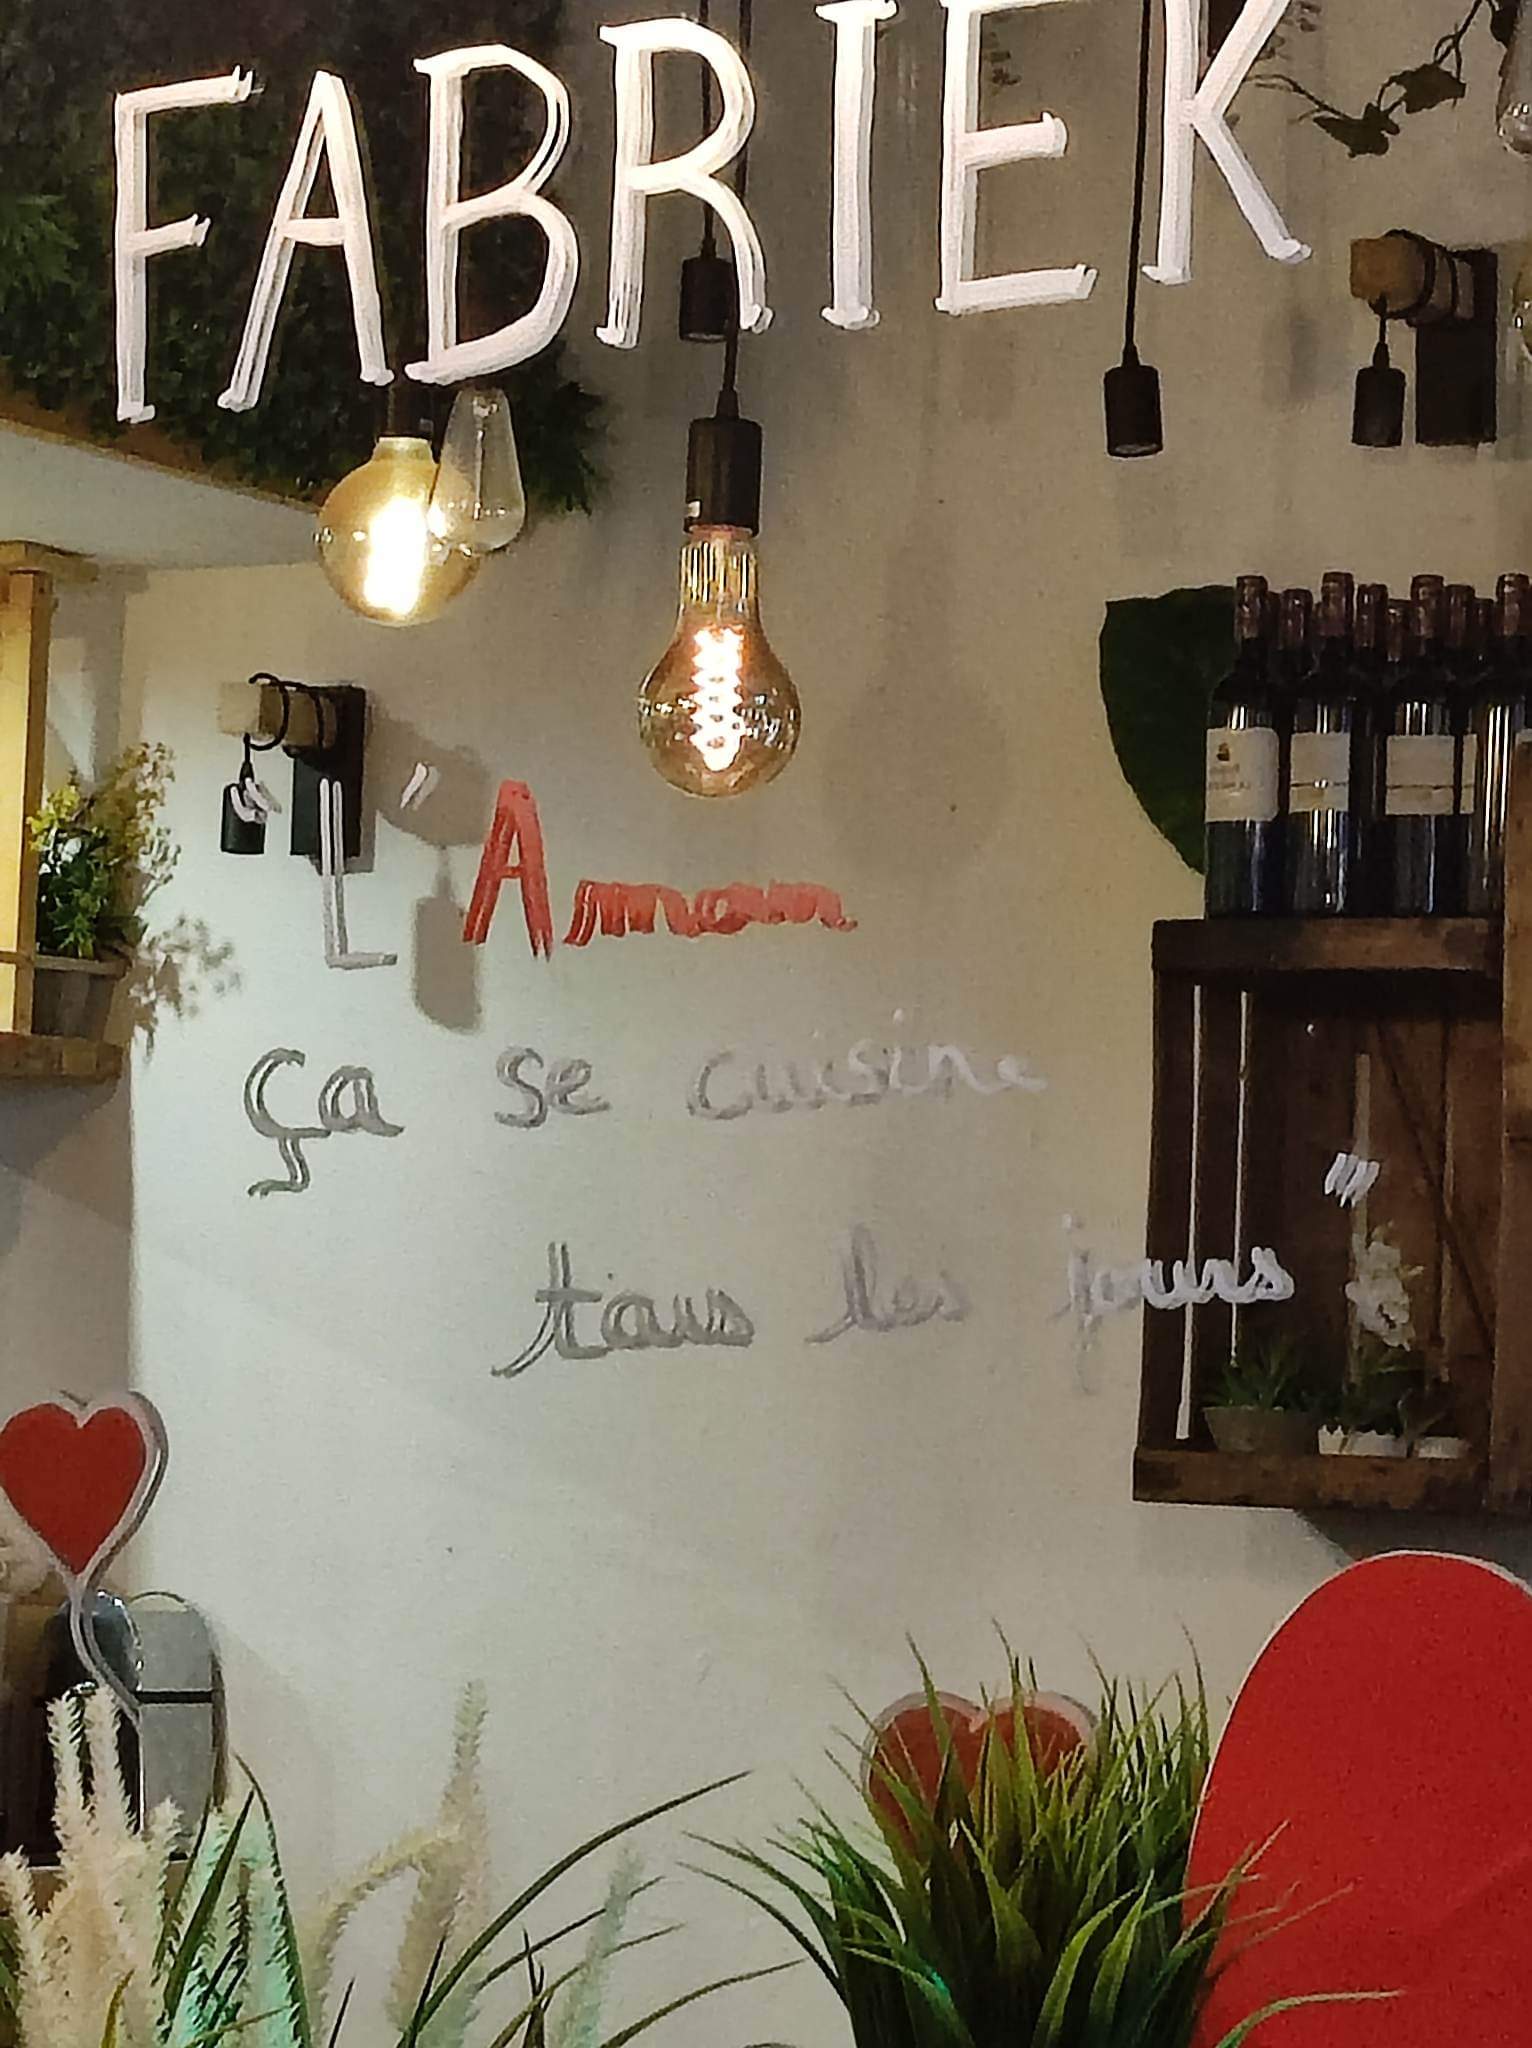 FABRIEK
"L'Amour
Ça se cuisine
tous les jours"